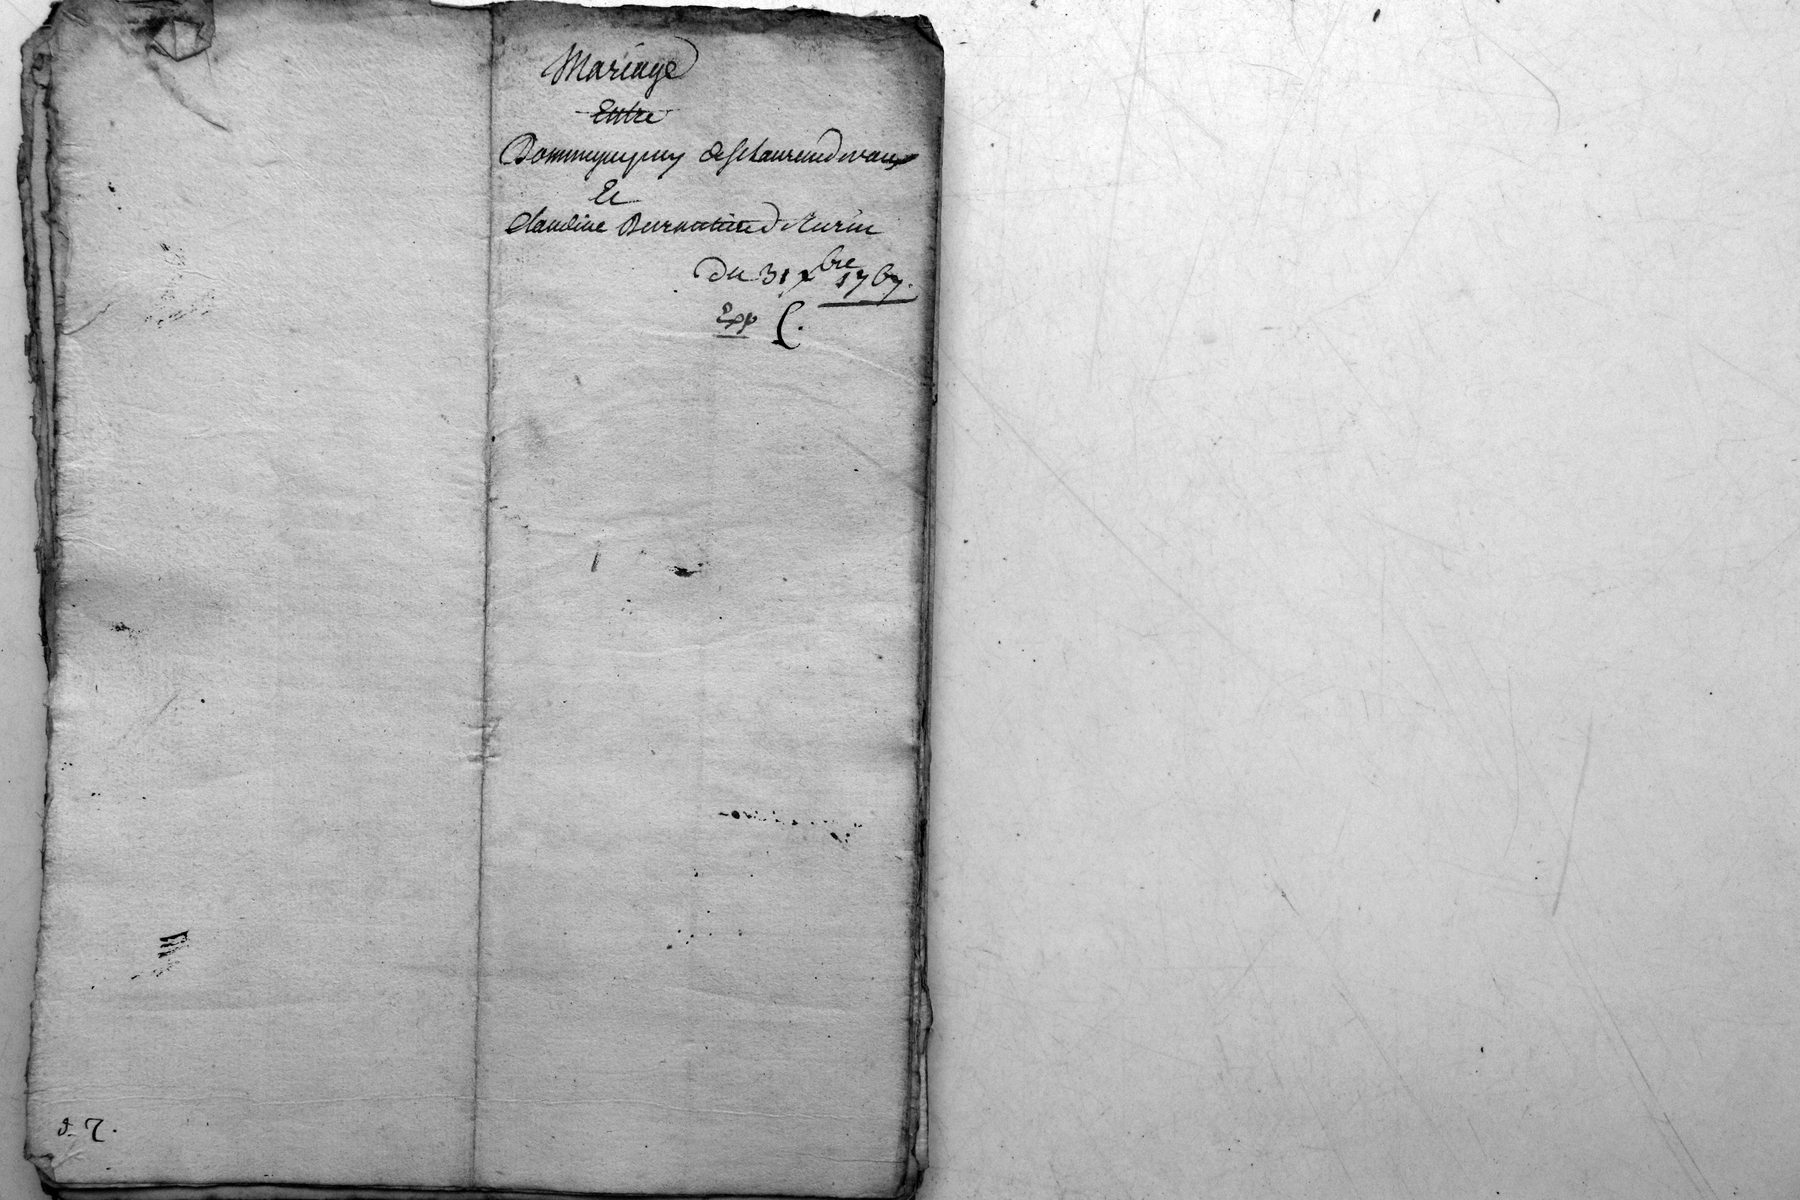 Mariage
Entre
Dominique puy de St Laurend vaux
Et
Claudine Burnatin d Aurin
Du 31 xbre 1767.
Exp
d. 7.